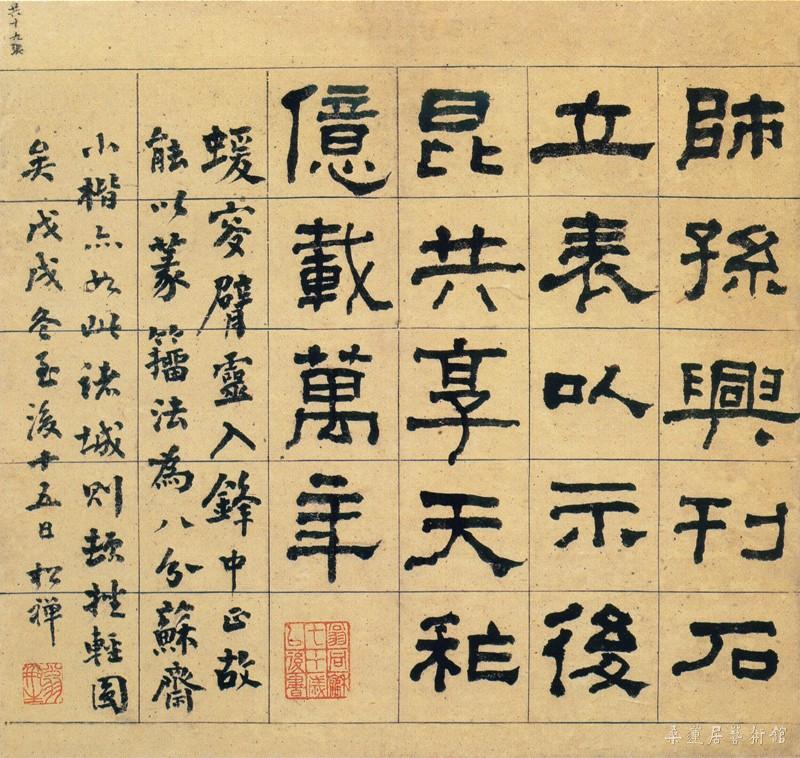 共十九張
師孫興刊石
立表以示後
昆共享天祚
億載萬年
翁同龢
七十歲
㠯後書
蝯叜臂靈入鋒中正故
能以篆籀法為八分蘇齋
小楷亦如此諸城則頓挫輕圓
矣戊戌冬至後十五日松禪
桑蓮居藝術館